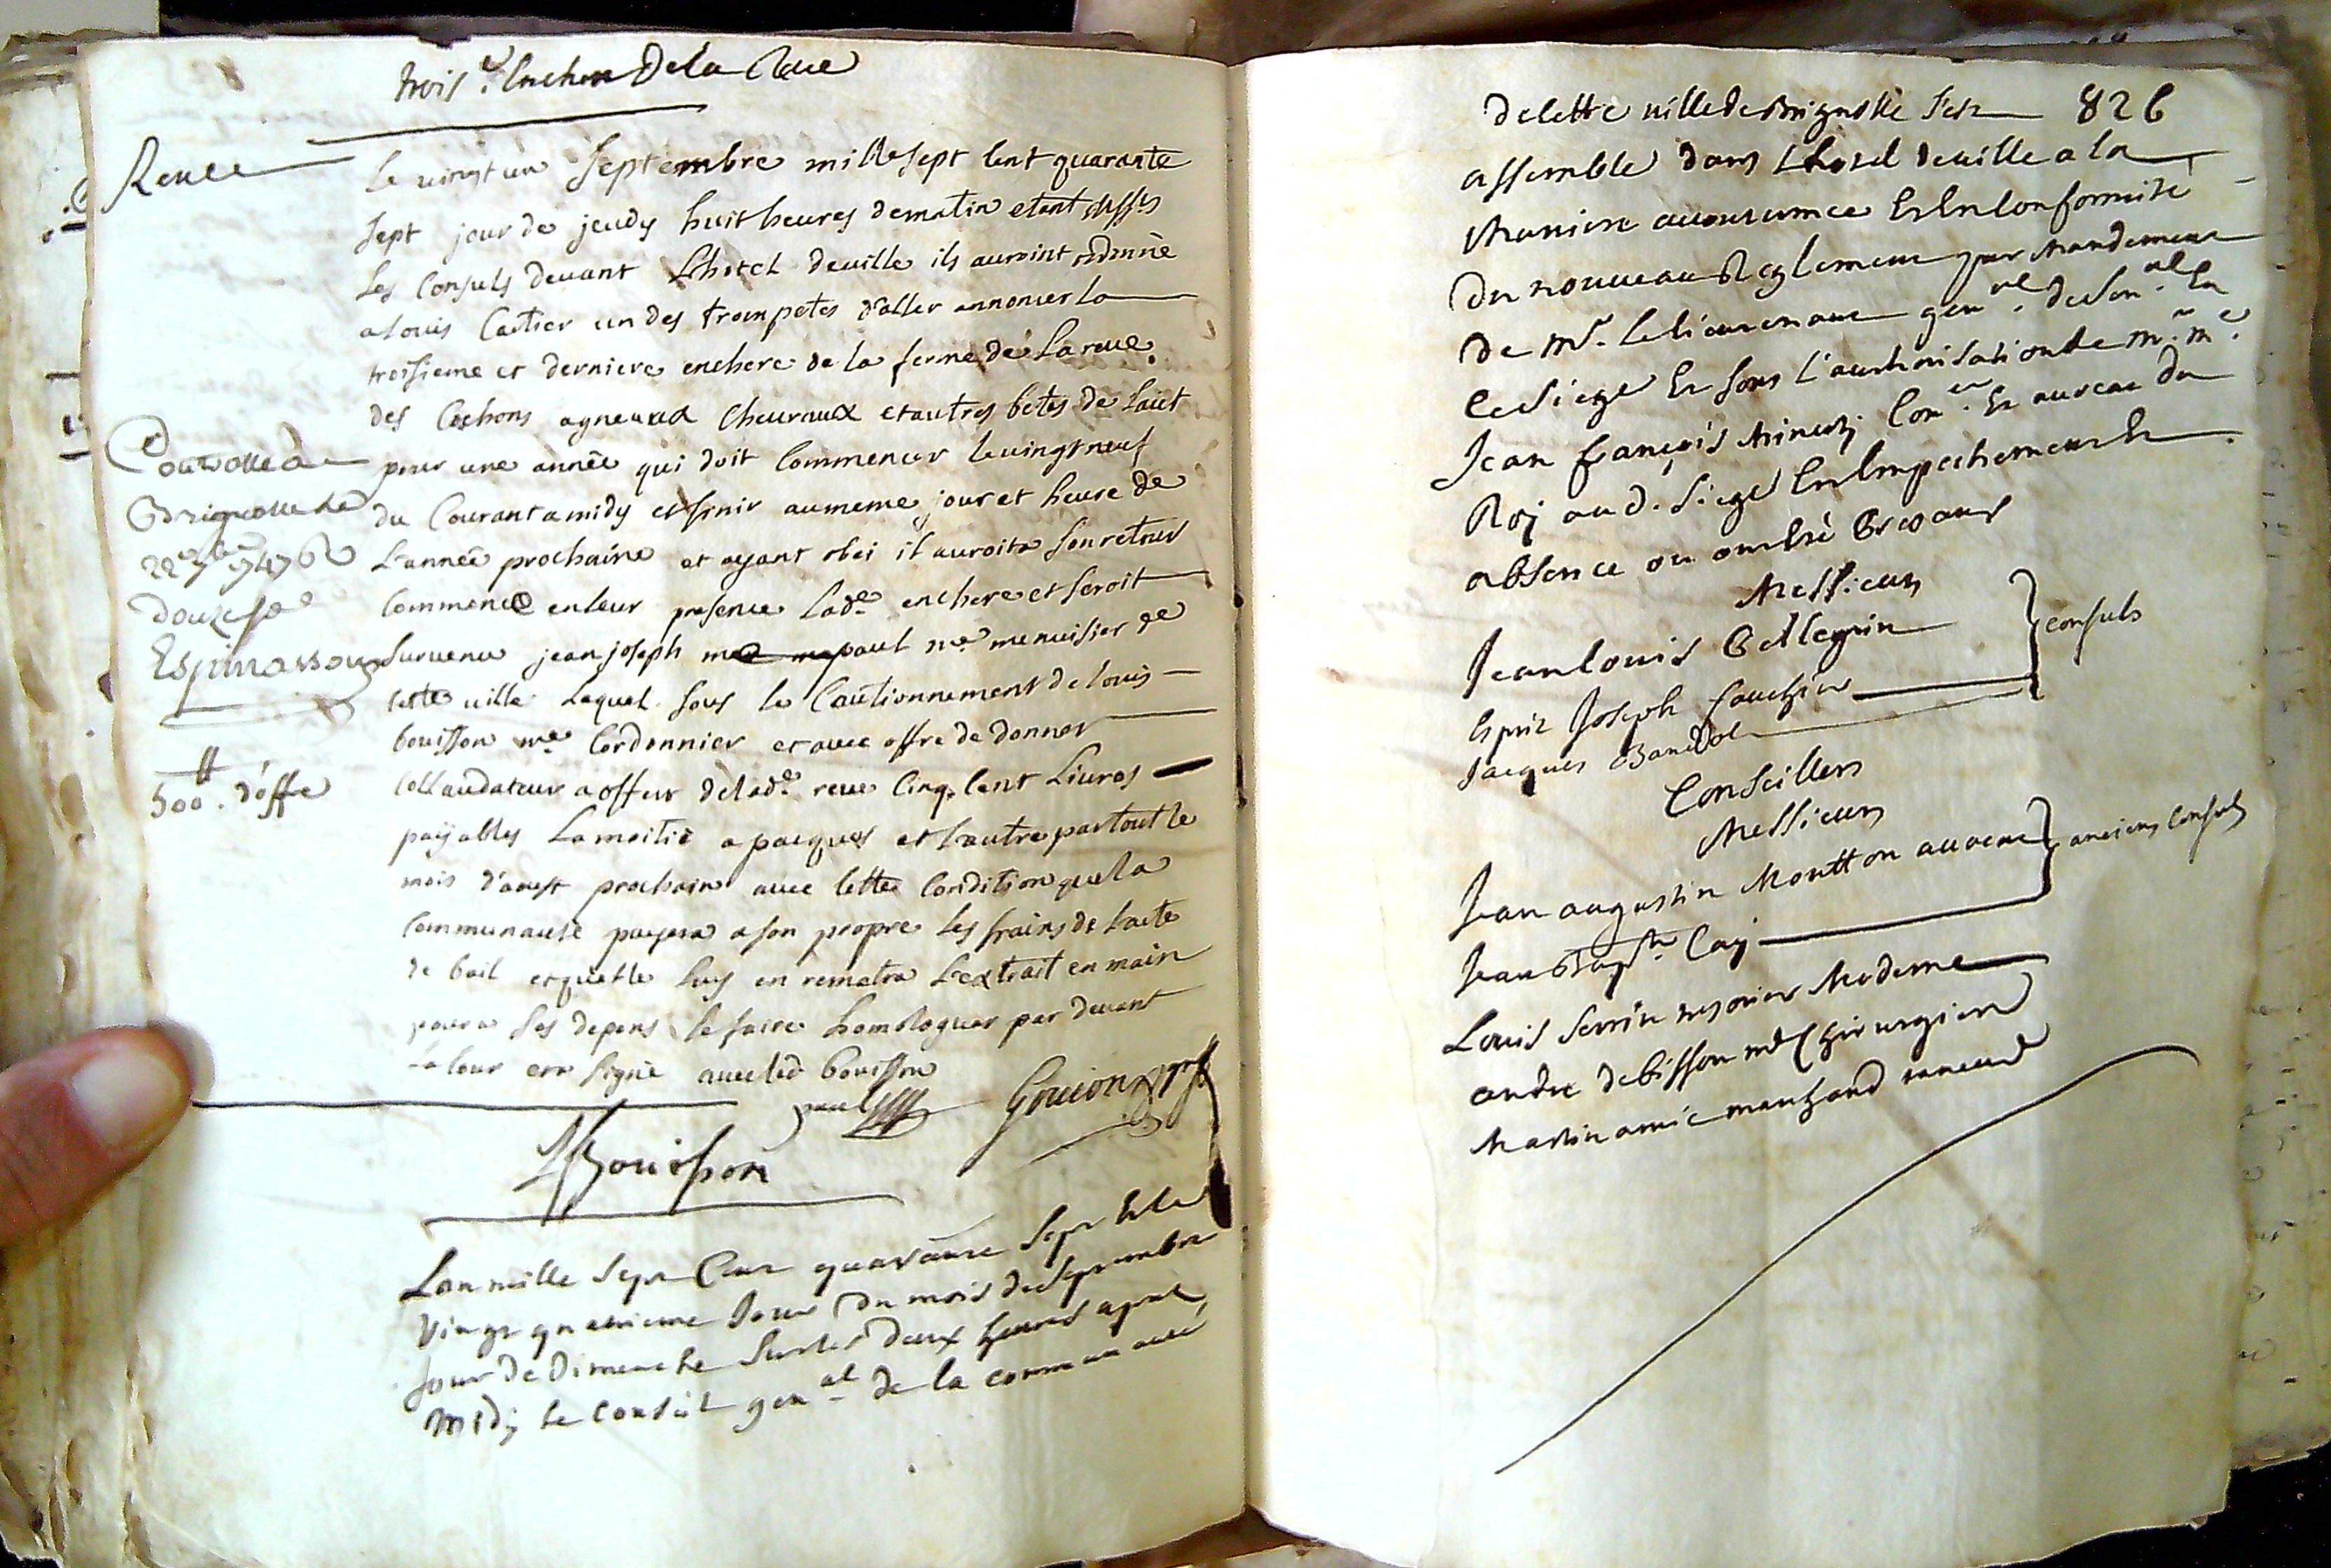 trois.e Enchere De la Reue
Reuee
Le vingt un Septembre mille sept Cent quarante
sept jour de jeudy huit heures de matin etant
Les Consuls devant Lhotel de ville ils auroint ordonné
a Louis Cartier un des trompetes d'aller annoncer la
troisieme et derniere enchere de la ferme de La reue
des Cochons agneaux Cheuraux et autres betes de Lait
pour une année qui doit Commencer le vingt neuf
du Courant a midy et finir au meme jour et heure de
L'année prochaine et ayant obei il auroit a son retour
Commencé en leur presence lad.e enchere et seroit
survenu jean joseph paul m.e menuisier de
cette ville Lequel sous le Cautionnement de Louis
bouisson m.e Cordonnier et avec offre de donner
Collaudateur a offert de lad.e reue Cinq Cent Livres
payables La moitié a pacques et L'autre par tout le
mois d'aoust prochain avec Cette Condition que la
Communauté payera a son propre Les frains de L'acte
de bail et qu'elle Luy en remetra L'extrait en main
pour a ses depens le faire homologuer par devant
La Cour et a signé avec led bouisson
Controllé a
Brignolle le
22e 7bre 1747 R
Douze s
Espinassous
500 ₶. d'offre
paul
Gouion
L Bouisson
Lan mille Sept Cent quarante Sept Et le
Vingt quatrieme Jour du mois de Septembre
Jour de Dimenche Sur les Deux heures apres
midy le Conseil gen.al de la communauté
de Cette ville de Brignolle S'est 826
assemblé dans Lhotel de ville a la
Maniere accoutumee Et En Conformité
Du nouveau Reglement par Mandement
De Mr. le lieutenant gen.al de Sen.al En
Ce Siege Et sous l'authorisation de mr. me.
Jean françois Minuty Con.er Et avocat du
Roy aud. Siege En Empechement Et
absence ou ont Eté Presans
Messieurs
Jean Louis Bellegrin
Esprit Joseph fauchier
Jacques Bandol
consuls
Conseillers
Messieurs
Jean augustin Moutton avocat
Jean Bapt.te Cay
anciens Consuls
Louis Serrin tresorier Moderne
andre debisson me Chirurgien
Martin amic marchand